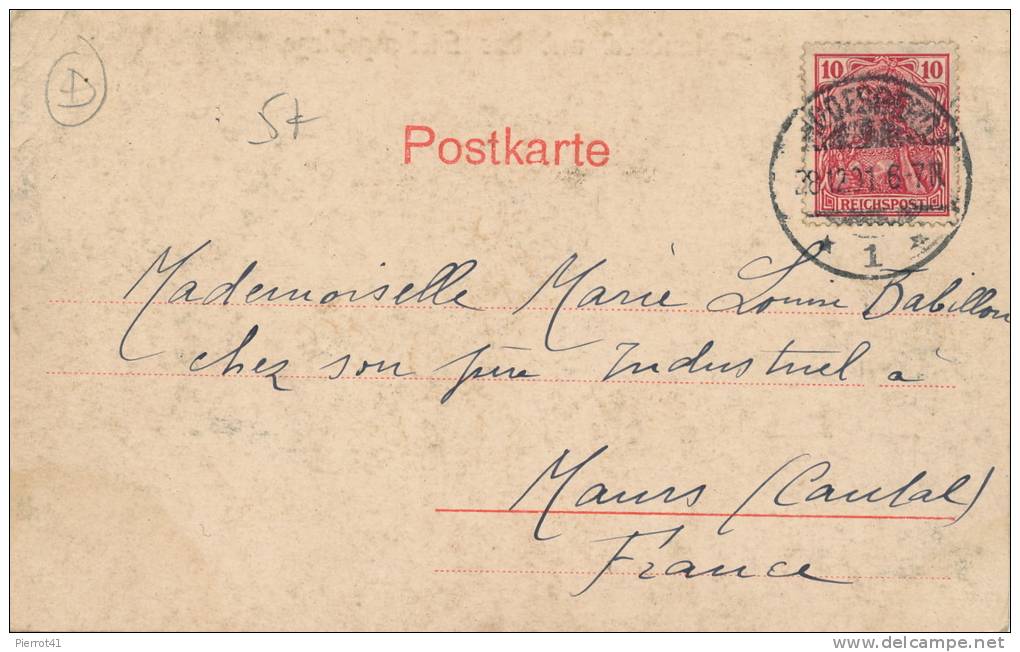 D
57
Postkarte
10 10
REICHSPOST
28.12.01.6-7N
1
Mademoiselle Marie Louise Babillon
chez son père Industriel à
Maurs (Cantal)
France
Pierrot41
delcampe.net